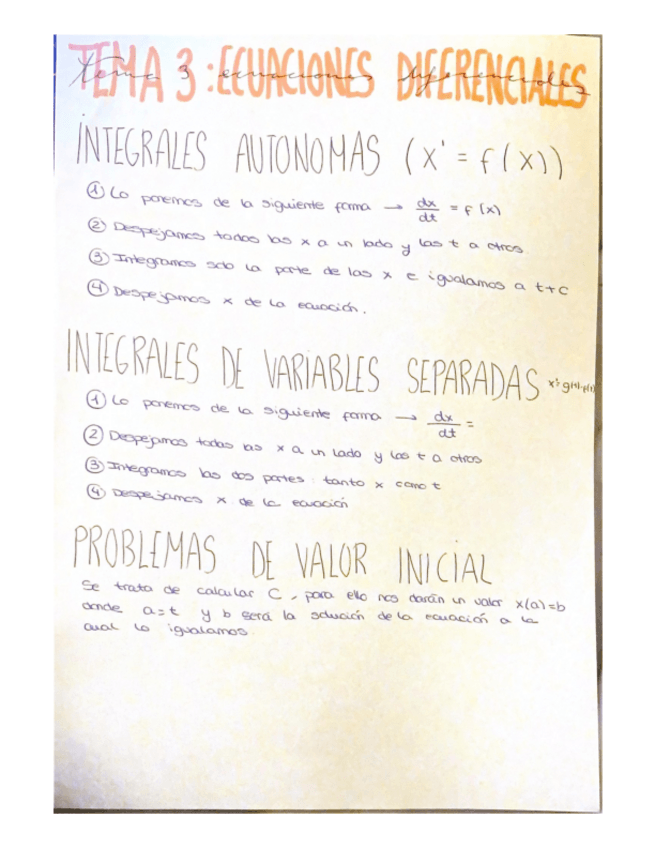 TEMA 3: ECUACIONES DIFERENCIALES
Tema 3 ecuaciones diferenciales
INTEGRALES AUTONOMAS (x' = f(x))
① Lo ponemos de la siguiente forma → dx/dt = f(x)
② Despejamos todos las x a un lado y las t a otros
③ Integramos solo la parte de las x e igualamos a t+c
④ Despejamos x de la ecuación.
INTEGRALES DE VARIABLES SEPARADAS x'=g(t)·f(x)
① Lo ponemos de la siguiente forma → dx/dt =
② Despejamos todas las x a un lado y las t a otros
③ Integramos las dos partes: tanto x como t
④ Despejamos x de la ecuación
PROBLEMAS DE VALOR INICIAL
Se trata de calcular C, para ello nos darán un valor x(a)=b
donde a=t y b será la solución de la ecuación a la
cual lo igualamos.